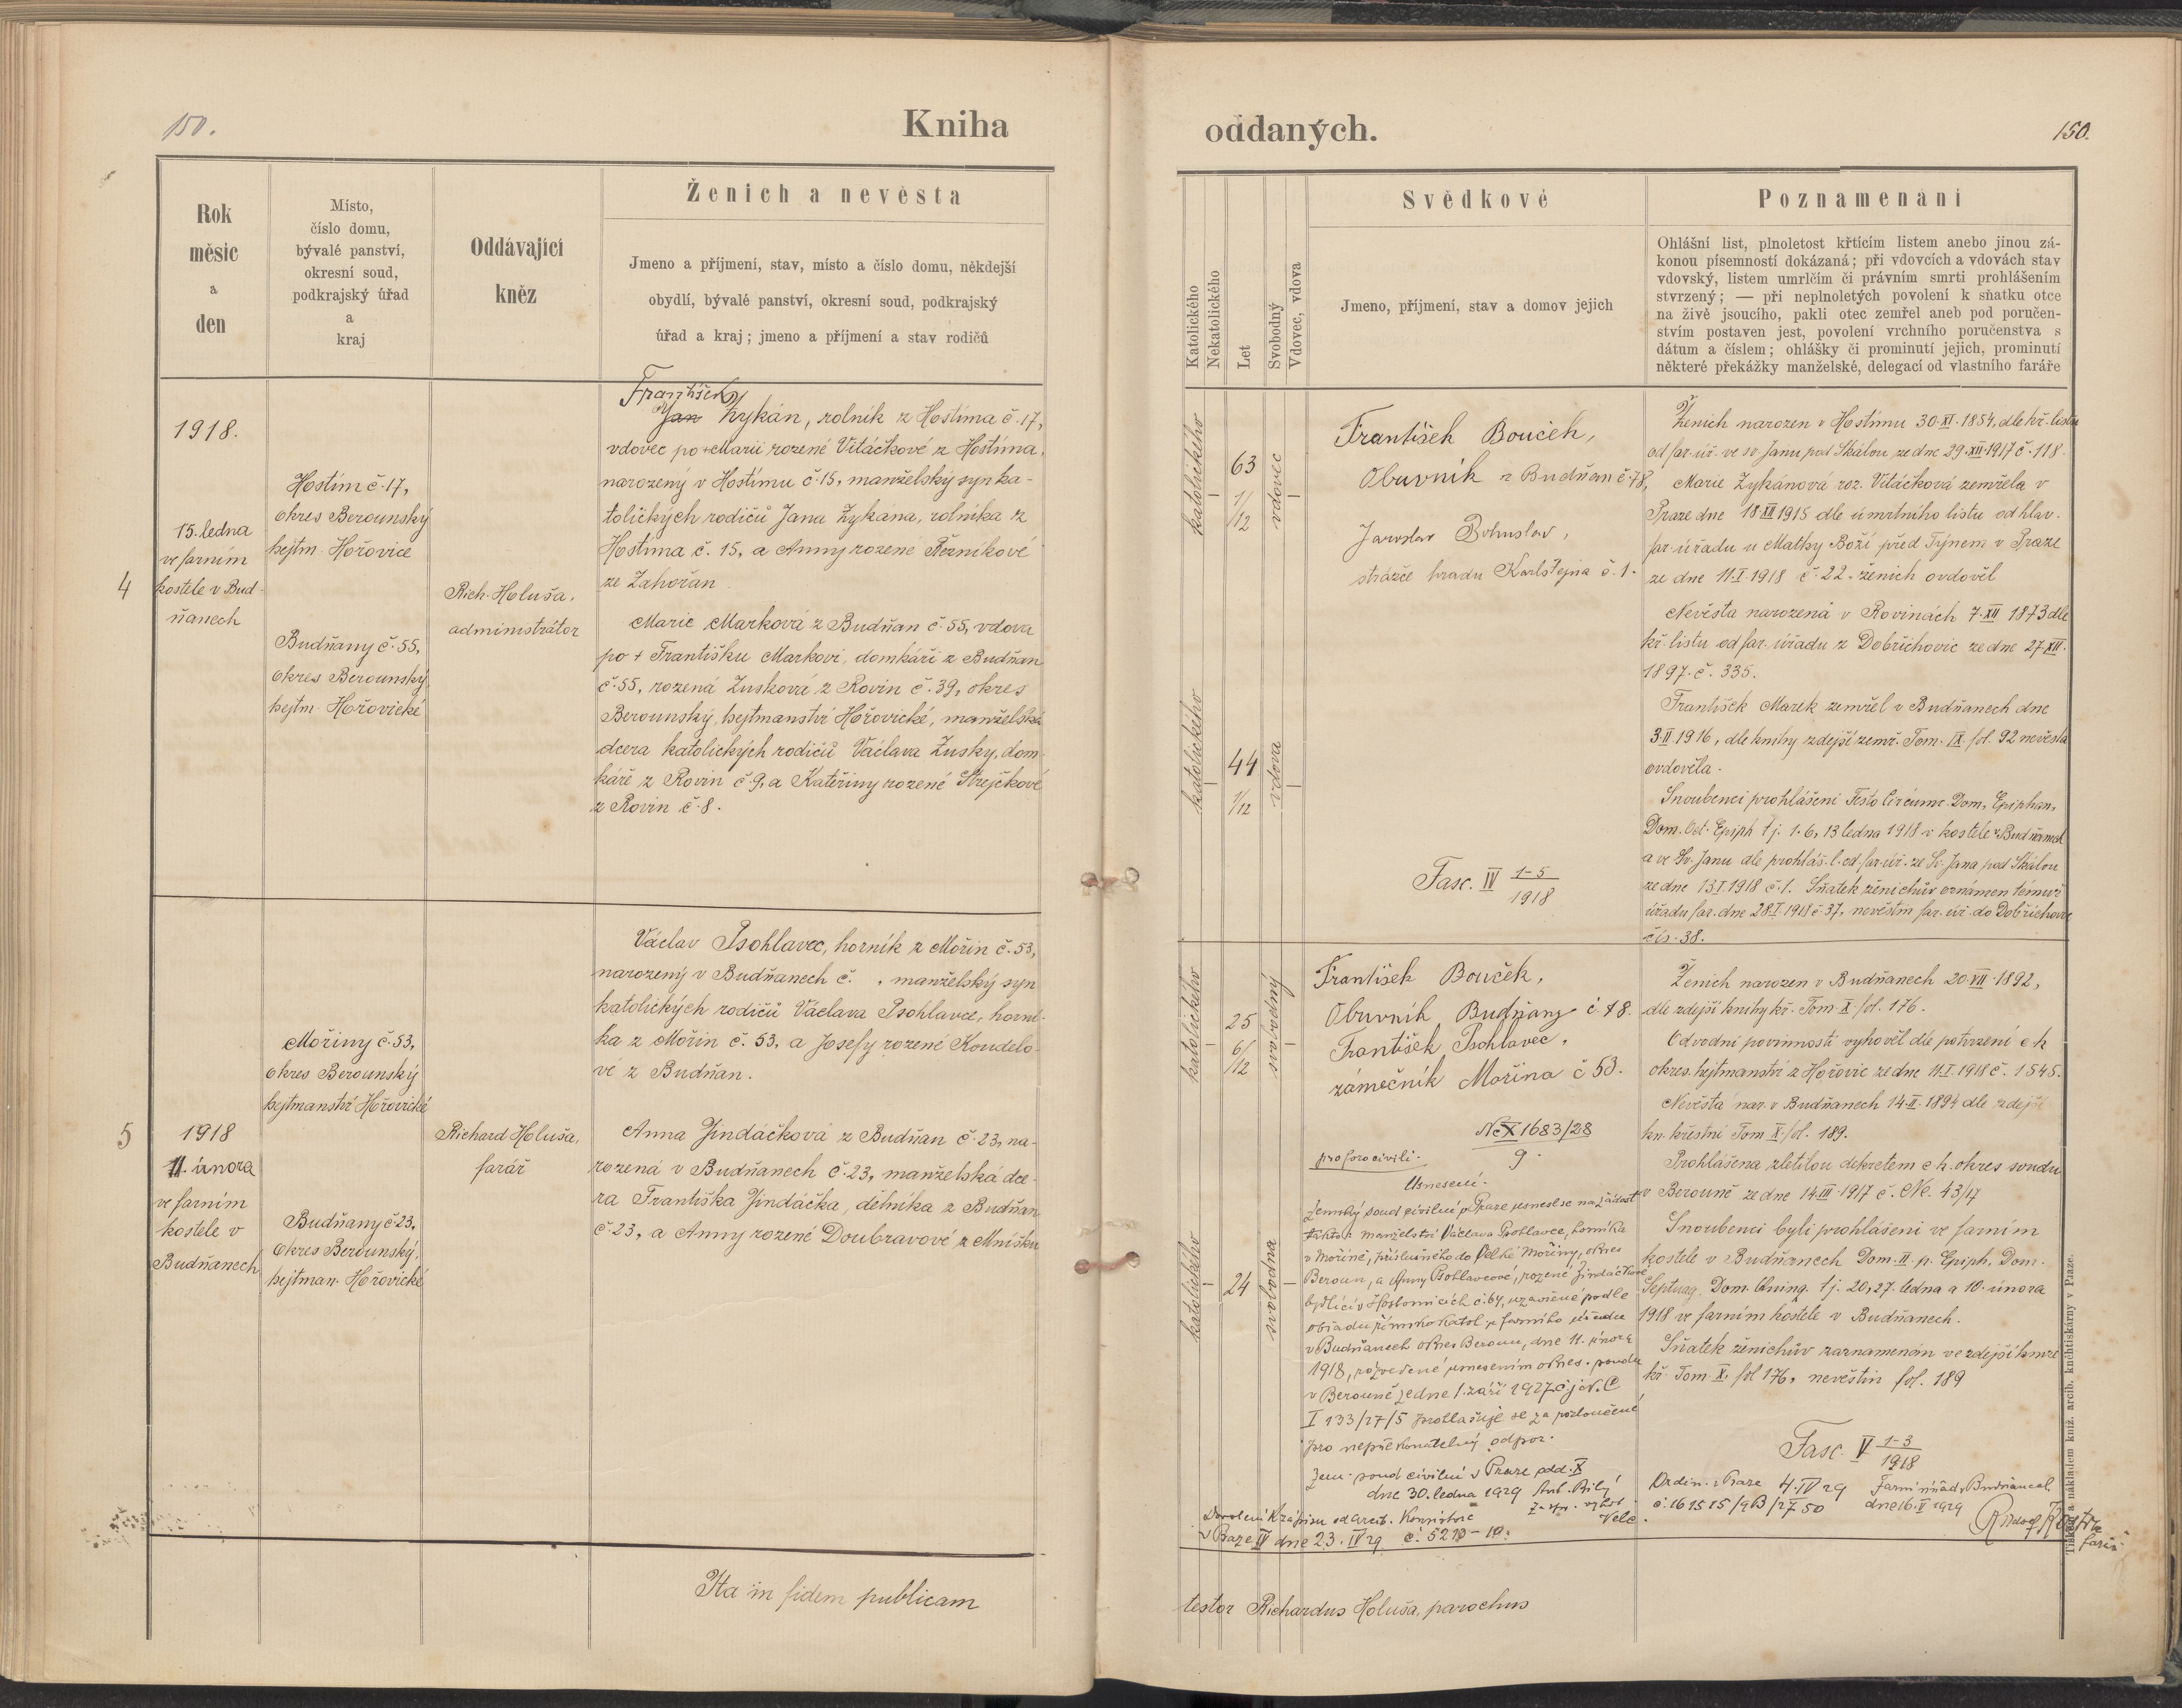 150.
Kniha
oddaných.
150.
Rok
měsic
a
den
Místo,
číslo domu,
bývalé panství,
okresní soud,
podkrajský úřad
a
kraj
Oddávající
kněz
Ženich a nevěsta
Jmeno a příjmení, stav, místo a číslo domu, někdejší
obydlí, bývalé panství, okresní soud, podkrajský
úřad a kraj; jmeno a příjmení a stav rodičů
1918.
4
15. ledna
ve farním
kostele v Bud-
ňanech
Hostim č. 17,
okres Berounský
hejtm. Hořovice
Budňany č. 55,
okres Berounský,
hejtm. Hořovické
Rich. Holuša,
administrátor
František
Jan Zykán, rolník z Hostíma č. 17,
vdovec po + Marii rozené Vitáčkové z Hostíma,
narozený v Hostímu č. 15, manželský syn ka-
tolických rodičů Jana Zykána, rolníka z
Hostíma č. 15, a Anny rozené Řezníkové
ze Zahořan
Marie Marková z Budňan č. 55, vdova
po + Františku Markovi, domkáři z Budňan
č. 55, rozená Zusková z Rovin č. 39, okres
Berounský, hejtmanství Hořovické, manželská
dcera katolických rodičů Václava Zusky, dom-
káře z Rovin č. 9, a Kateřiny rozené Strejčkové
z Rovin č. 8.
5
1918
11. února
ve farním
kostele v
Budňanech
Mořiny č. 53,
okres Berounský
hejtmanství Hořovické
Budňany č. 23,
Okres Berounský,
hejtman. Hořovické
Richard Holuša,
farář
Václav Psohlavec, horník z Mořin č. 53,
narozený v Budňanech č. , manželský syn
katolických rodičů Václava Psohlavce, horní-
ka z Mořin č. 53, a Josefy rozené Koudelo-
vé z Budňan.
Anna Jindáčková z Budňan č. 23, na-
rozená v Budňanech č. 23, manželská dce-
ra Františka Jindáčka, dělníka z Budňan
č. 23, a Anny rozené Doubravové z Mníšku
Ita in fidem publicam
Katolického
Nekatolického
Let
Svobodný
Vdovec, vdova
Svědkové
Jmeno, příjmení, stav a domov jejich
Poznamenání
Ohlášní list, plnoletost křtícím listem anebo jinou zá-
konou písemností dokázaná; při vdovcích a vdovách stav
vdovský, listem umrlčím či právním smrti prohlášením
stvrzený; — při neplnoletých povolení k sňatku otce
na živě jsoucího, pakli otec zemřel aneb pod poručen-
stvím postaven jest, povolení vrchního poručenstva s
dátum a číslem; ohlášky či prominutí jejich, prominutí
některé překážky manželské, delegací od vlastního faráře
katolického
63
1/12
vdovec
František Bouček,
Obuvník z Budňan č. 78,
Jaroslav Bohuslav,
strážce hradu Karlštejna č. 1.
katolického
44
1/12
vdova
Fasc. IV 1-5
1918
Ženich narozen v Hostímu 30. XI. 1854, dle kř. listu
od far. úř. ve sv. Janu pod Skálou ze dne 29. XII. 1917 č. 118.
Marie Zykánová roz. Vitáčková zemřela v
Praze dne 18. XII 1915 dle úmrtního listu od hlav.
far. úřadu u Matky Boží před Týnem v Praze
ze dne 11. I. 1918 č. 22. ženich ovdověl
Nevěsta narozená v Rovinách 7. XII 1873 dle
kř. listu od far. úřadu z Dobřichovic ze dne 27. XII.
1897. č. 335.
František Marek zemřel v Budňanech dne
3. II 1916, dle knihy zdejší zemř. Tom. IX. fol. 92 nevěsta
ovdověla.
Snoubenci prohlášeni Festo Circumc. Dom., Epiphan,
Dom. Oct. Epiph tj. 1. 6, 13 ledna 1918 v kostele v Budňanech
a ve Sv. Janu dle prohláš. l. od far. úř. ze Sv. Jana pod Skálou
ze dne 13. I. 1918 č. 1. Sňatek ženichův oznámen témuž
úřadu far. dne 28. I. 1918 č. 37, nevěstin far. úř. do Dobřichovic
čís. 38.
katolického
25
6/12
svobodný
František Bouček,
Obuvník Budňany č. 78.
František Psohlavec,
zámečník Mořina č 53.
Nc X 1683/28
9.
pro foro civili.
Usnesení.
Zemský soud civilní v Praze usnesl se na žádost
takto: manželství Václava Psohlavce, horníka
v Mořině, příslušného do Velké Mořiny, okres
Beroun, a Anny Psohlavcové, rozené Jindáčkové
bydlící v Hostomicích č. 64, uzavřené podle
obřadu římsko katol. u farního úřadu
v Budňanech okres Beroun, dne 11. února
1918, rozvedené usnesením okres. soudu
v Berouně ze dne 1. září 1927 č. j. C
I 133/27/5 prohlašuje se za rozloučené
pro nepřekonatelný odpor.
Zem. soud civilní v Praze odd. X
dne 30. ledna 1929 Ant. Bílý
Povolení k zápisu od arcib. Konsistoře
v Praze IV dne 23. IV 29 č. 5210-10.
katolického
24
svobodna
Ženich narozen v Budňanech 20. VII. 1892,
dle zdejší knihy kř. Tom. X. fol. 176.
Odvodní povinnosti vyhověl dle potvrzení c k
okres. hejtmanství z Hořovic ze dne 11. I. 1918 č. 1545.
Nevěsta nar. v Budňanech 14. II. 1894 dle zdejší
kn. křestní Tom X. fol. 189.
Prohlášena zletilou dekretem c. k. okres soudu
v Berouně ze dne 14. III. 1917 č. Nc. 43/17
Snoubenci byli prohlášeni ve farním
kostele v Budňanech Dom. II. p. Epiph, Dom.
Septuag. Dom. Quinq. tj. 20, 27. ledna a 10. února
1918 ve farním kostele v Budňanech.
Sňatek ženichův zaznamenán ve zdejší knize
kř. Tom. X. fol 176, nevěstin fol. 189
Fasc. V 1-3
1918
Ordin. v Praze 4. IV 29 Farní úřad v Budňanech
dne 16. V 1929
Rudolf
farář
testor Richardus Holuša, parochus
Tiskem a nákladem kníž. arcib. knihtiskárny v Praze.